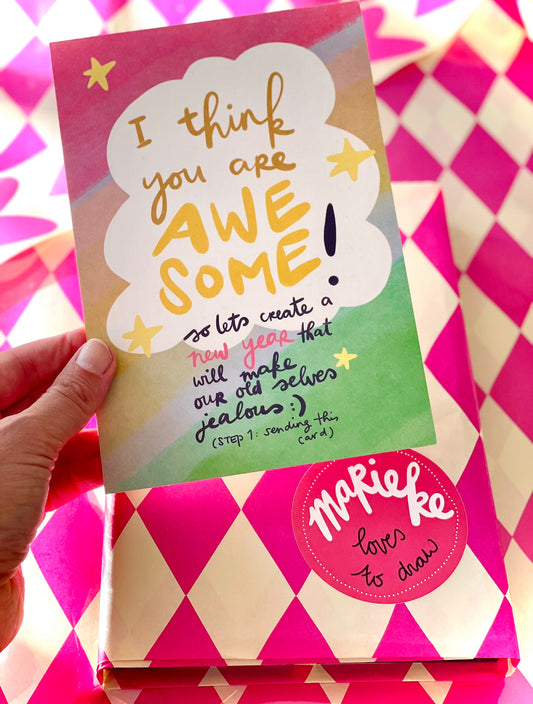 I think
you are
AWE
SOME!
so lets create a
new year that
will make
our old selves
jealous :)
(STEP 1: sending this
card)
MARIEKE
loves
to draw